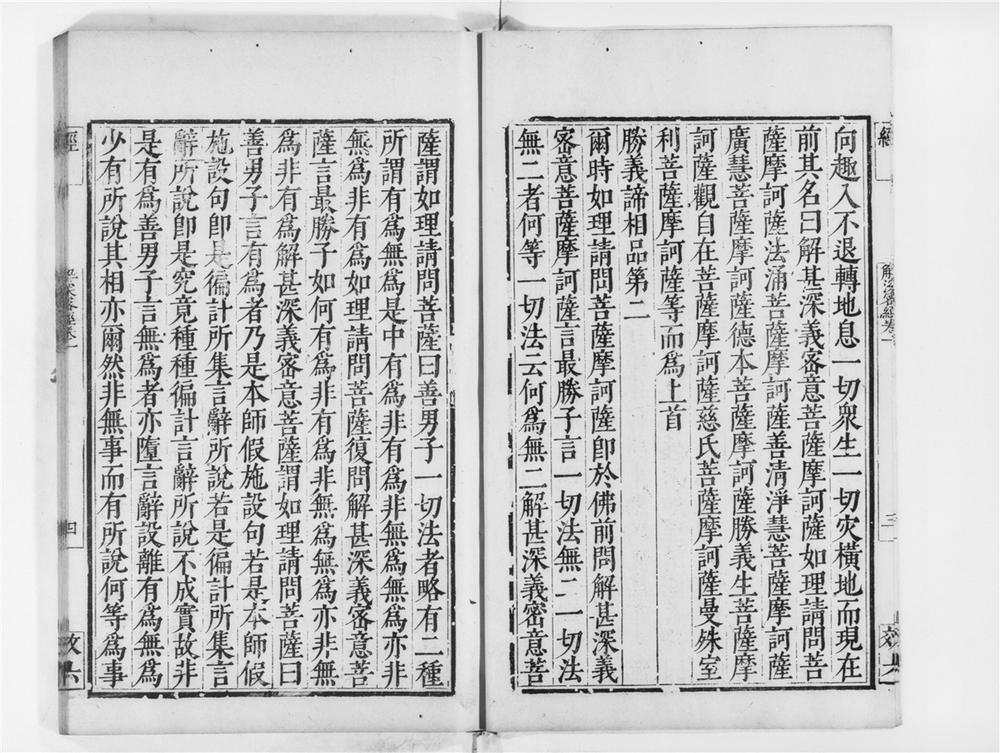 向趣入不退轉地息一切衆生一切灾橫地而現在
前其名曰解甚深義密意菩薩摩訶薩如理請問菩
薩摩訶薩法涌菩薩摩訶薩善清淨慧菩薩摩訶薩
廣慧菩薩摩訶薩德本菩薩摩訶薩勝義生菩薩摩
訶薩觀自在菩薩摩訶薩慈氏菩薩摩訶薩曼殊室
利菩薩摩訶薩等而爲上首
勝義諦相品第二
爾時如理請問菩薩摩訶薩卽於佛前問解甚深義
密意菩薩摩訶薩言最勝子言一切法無二一切法
無二者何等一切法云何爲無二解甚深義密意菩
薩謂如理請問菩薩曰善男子一切法者略有二種
所謂有爲無爲是中有爲非有爲非無爲無爲亦非
無爲非有爲如理請問菩薩復問解甚深義密意菩
薩言最勝子如何有爲非有爲非無爲無爲亦非無
爲非有爲解甚深義密意菩薩謂如理請問菩薩曰
善男子言有爲者乃是本師假施設句若是本師假
施設句卽是徧計所集言辭所說若是徧計所集言
辭所說卽是究竟種種徧計言辭所說不成實故非
是有爲善男子言無爲者亦墮言辭設離有爲無爲
少有所說其相亦爾然非無事而有所說何等爲事
經
解深密經卷一
三
經
解深密經卷一
四